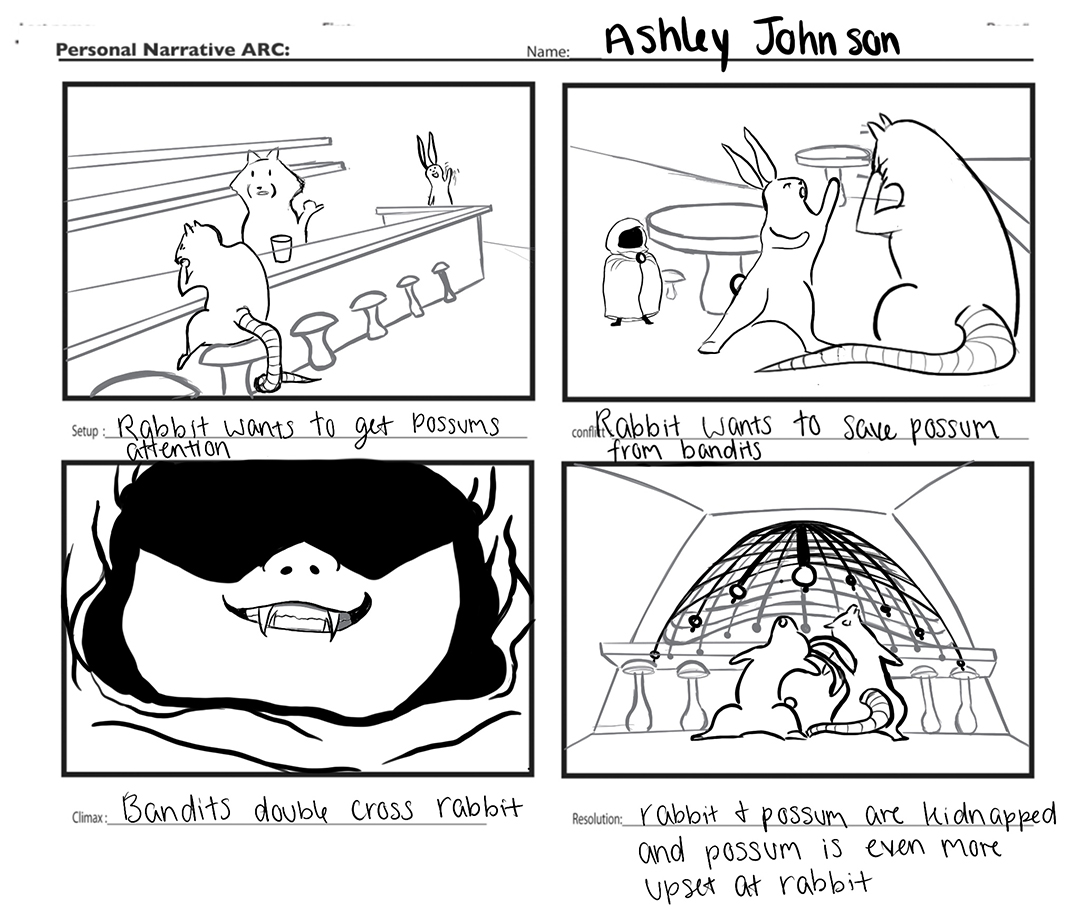 Personal Narrative ARC:
Name: Ashley Johnson
Setup : Rabbit wants to get possums
attention
conflict Rabbit wants to save possum
from bandits
Climax : Bandits double cross rabbit
Resolution: rabbit & possum are kidnapped
and possum is even more
upset at rabbit